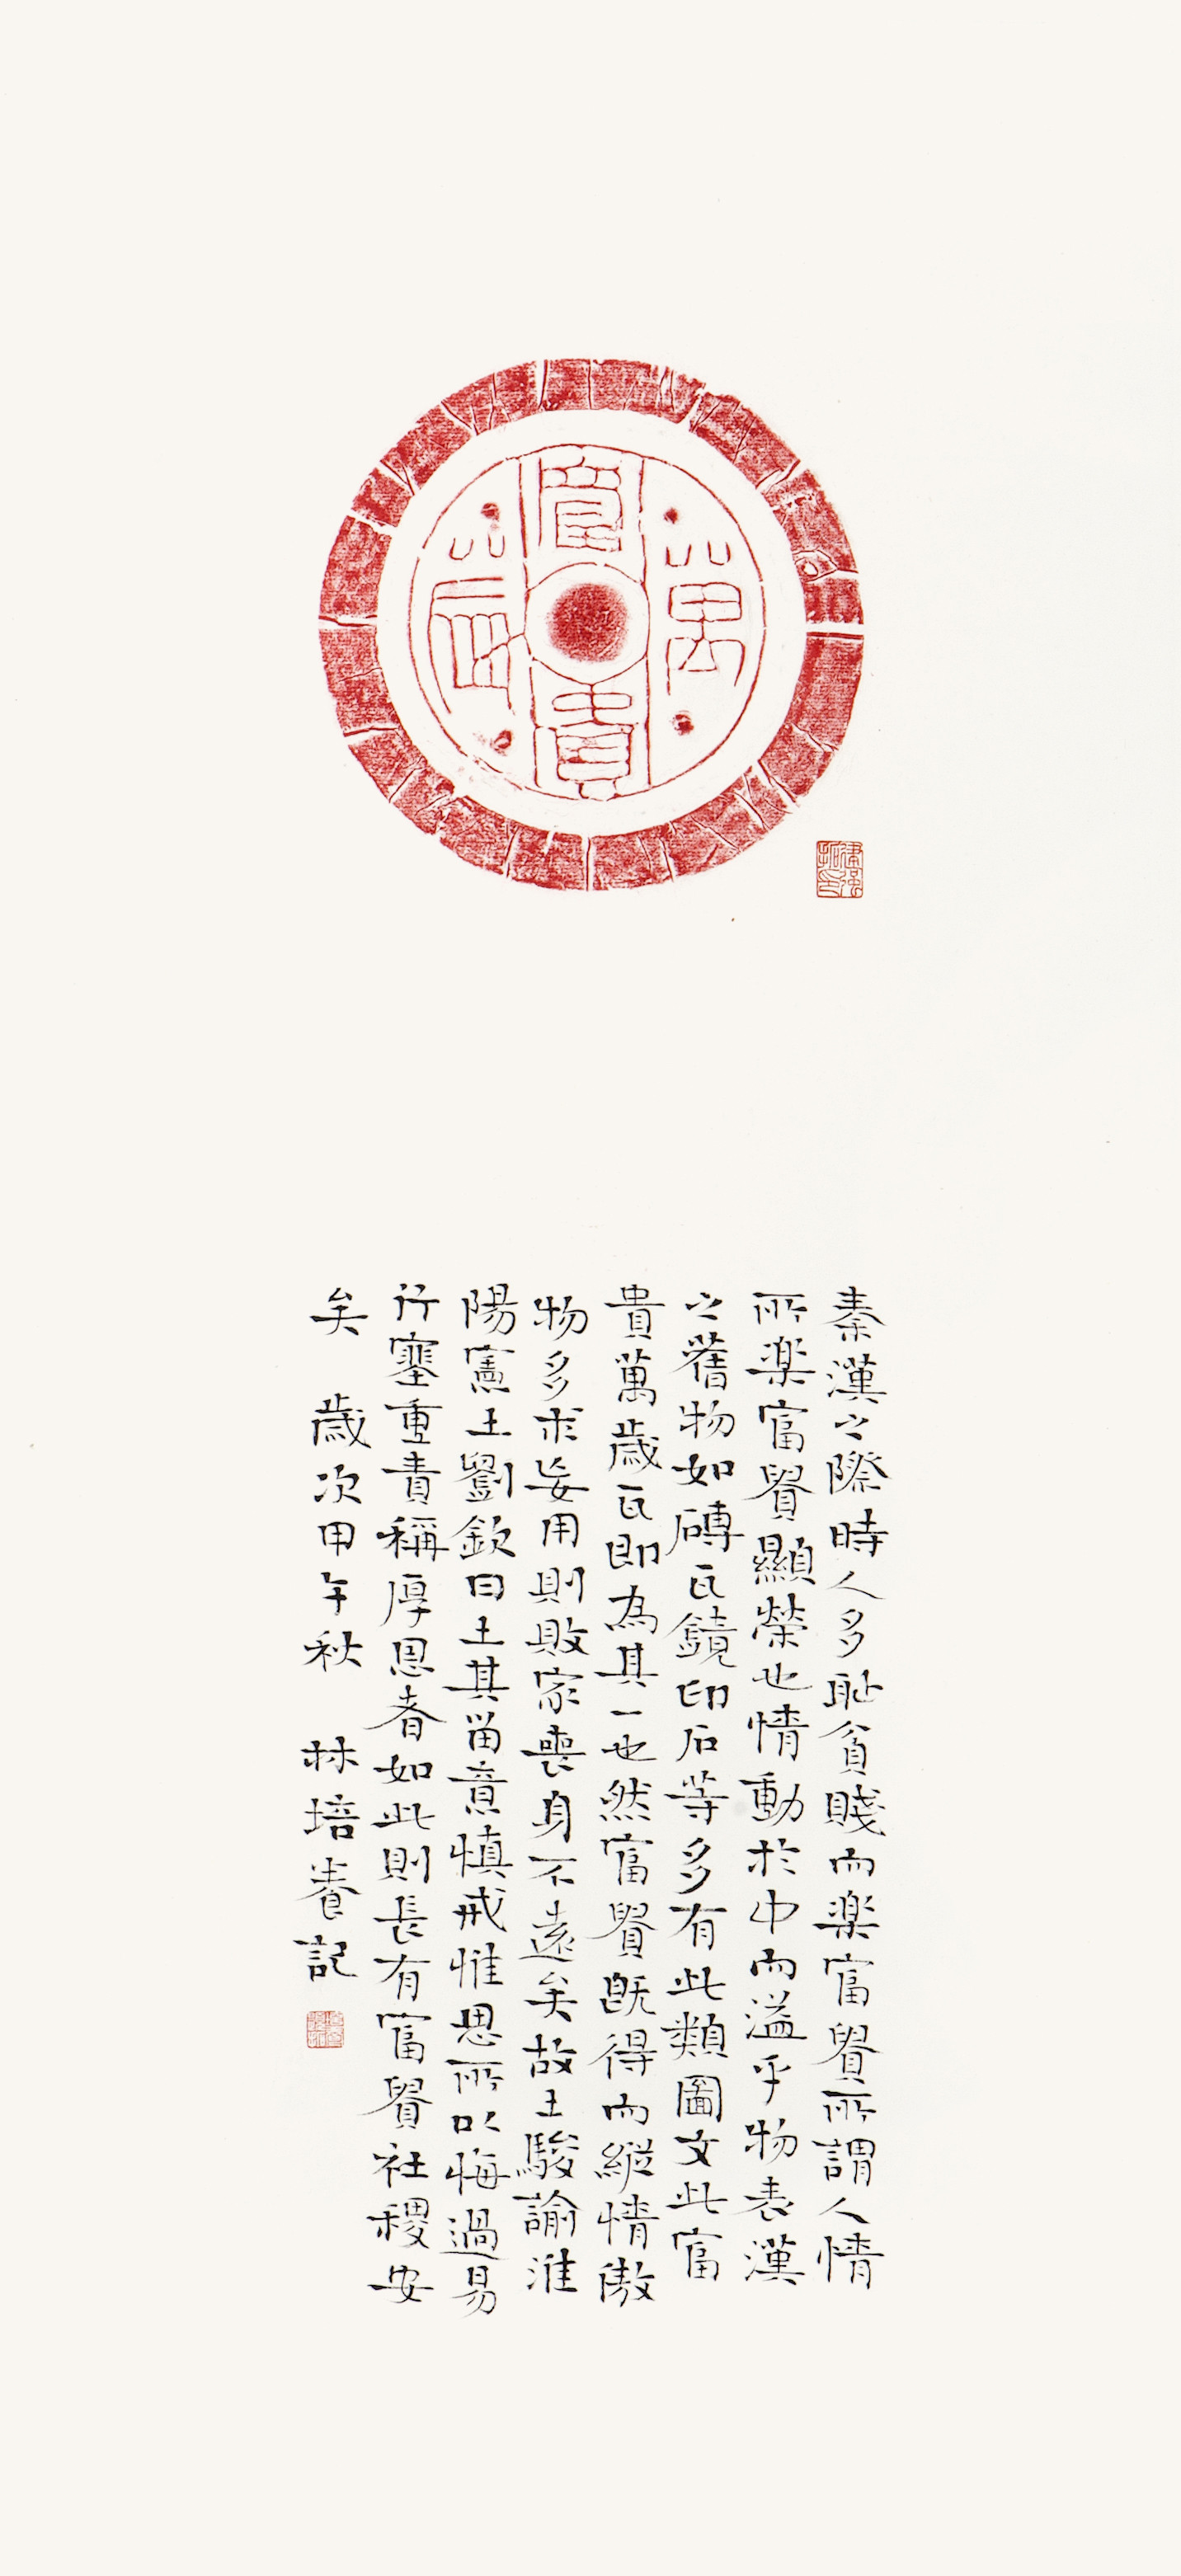 富貴萬歲
秦漢之際時人多恥貧賤而楽富貴所謂人情
所楽富貴顯榮也情動於中而溢乎物表漢
之舊物如磚瓦鏡印石等多有此類圖文此富
貴萬歲瓦即為其一也然富貴既得而縱情傲
物多求妄用則敗家喪身不遠矣故王駿諭淮
陽憲王劉欽曰王其留意慎戒惟思所以悔過易
行塞重責稱厚恩者如此則長有富貴社稷安
矣 歲次甲午秋 林培養記